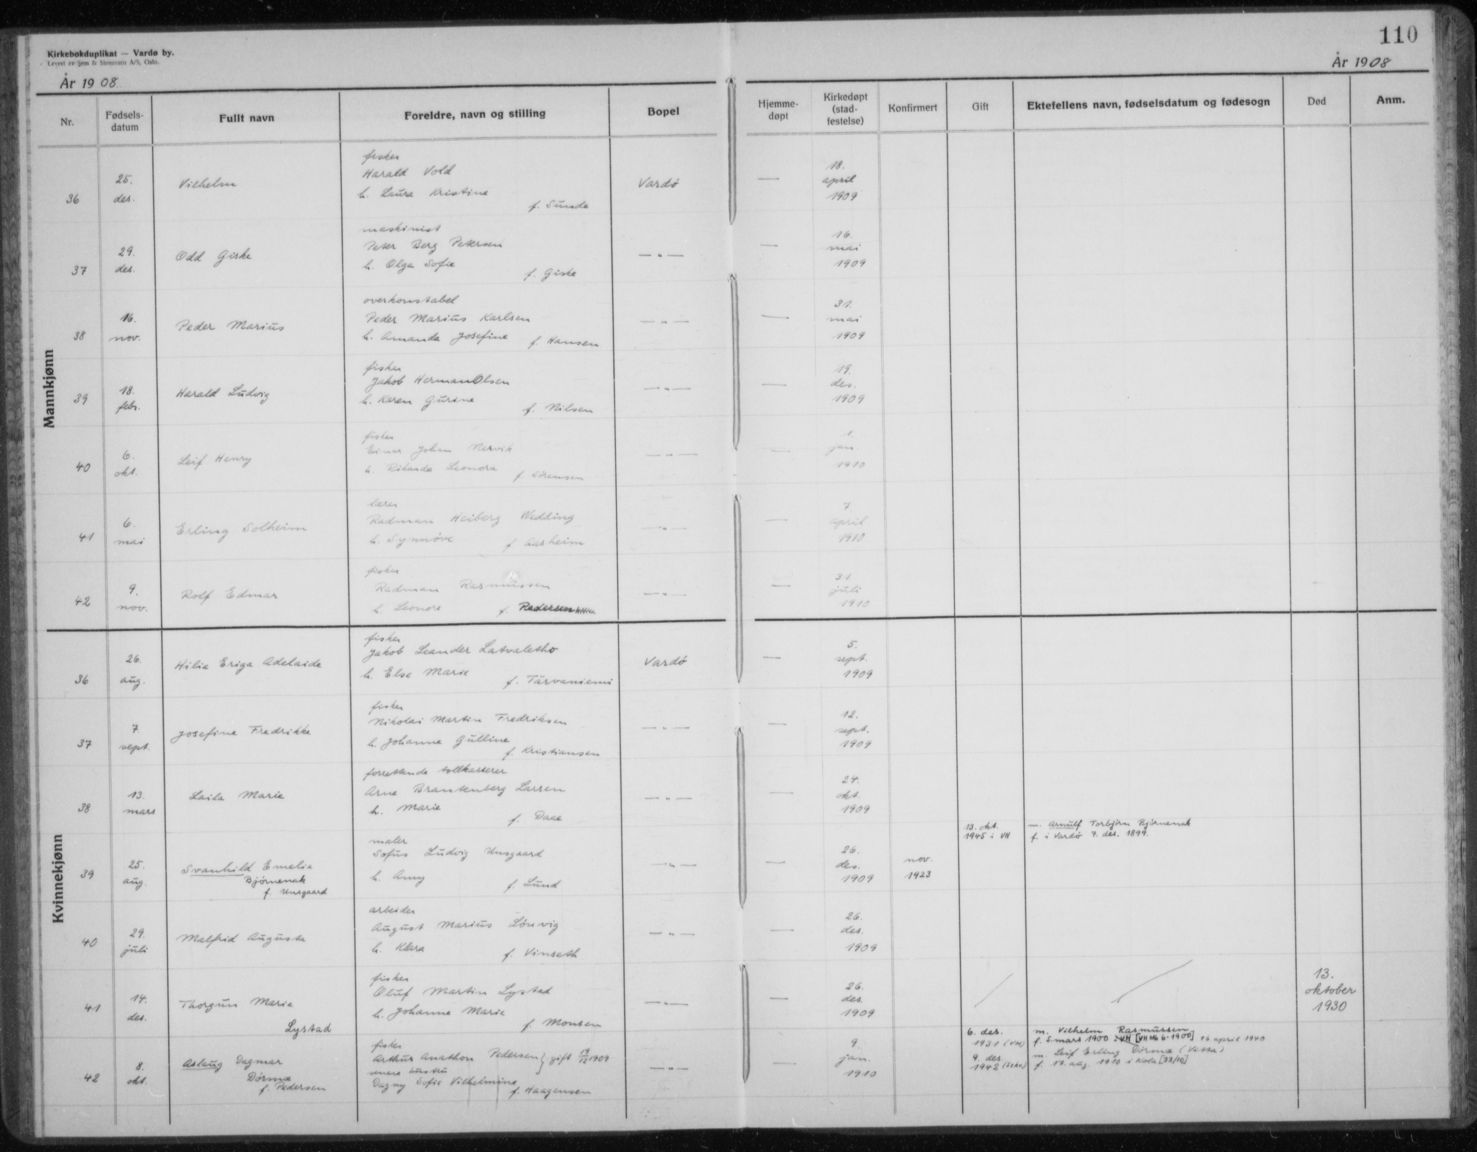 110
Kirkebokduplikat — Vardø by.
År 1908
År 1908
Nr.
Fødsels-
datum
Fullt navn
Foreldre, navn og stilling
Bopel
Hjemme-
døpt
Kirkedøpt
(stad-
festelse)
Konfirmert
Gift
Ektefellens navn, fødselsdatum og fødesogn
Død
Anm.
Mannkjønn
36
25.
des.
Vilhelm
fisker
Harald Vold
h. Laura Kristine
f. Sunde
Vardø
18.
april
1909
37
29.
des.
Odd Giske
maskinist
Peter Berg Petersen
h. Olga Sofie
f. Giske
— " —
16.
mai
1909
38
16.
nov.
Peder Marius
overkonstabel
Peder Marius Karlsen
h. Amanda Josefine f. Hansen
— " —
31.
mai
1909
39
18.
febr.
Harald Ludvig
fisker
Jakob Herman Olsen
h. Karen Gurine
f. Nilsen
— " —
19.
des.
1909
40
6.
okt.
Leif Henry
fisker
Einar Johan
Leonora
— " —
1.
jan.
1910
41
6.
mai
Erling Solheim
lærer
Radman Heiberg Wedding
h. Synnøve
f. Aasheim
— " —
7
april
1910
42
9.
nov.
Rolf Edmar
fisker
Radman Rasmussen
h. Leonore
f. Pedersen
— " —
31.
juli
1910
Kvinnekjønn
36
26.
aug.
Hilia Eriga Adelaide
fisker
Jakob Leander Latvaletho
h. Elsa Marie
f. Tärvaniemi
Vardø
5.
sept.
1909
37
7
sept.
Josefine Fredrikke
fisker
Nikolai Martin Fredriksen
h. Johanna Gulline
f. Kristiansen
— " —
12.
sept.
1909
38
13.
mars
Laila Marie
forrettende tollkasserer
Arne Brantenberg Larsen
h. Marie
f. Daae
— " —
24.
okt.
1909
39
25.
aug.
Svanhild Emelia
Bjørnenak
f. Unsgaard
maler
Sofus Ludvig Unsgaard
h. Amy
f. Lund
— " —
26.
des.
1909
nov.
1923
13. okt.
1945 i VH
—. Arnulf Torbjørn Bjørnenak
f. i Vardø 9. des. 1899.
40
29.
juli
Malfrid Augusta
arbeider
August Marius Lönvig
h. Klara
f. Vinseth
— " —
26.
des.
1909
41
14.
des.
Thorgun Marie
Lystad
fisker
Oluf Martin Lystad
h. Johanne Marie
f. Monsen
— " —
26.
des.
1909
13.
oktober
1930
42
8.
okt.
Aslaug Dagmar
Dørmæ
f. Pedersen
fisker
Arthur Anathon Pedersen } gift 1909
Dagny Sofie Vilhelmine
f. Haagensen
— " —
9.
jan.
1910
6. des.
1931 (VH)
9. des.
1942
m. Vilhelm Rasmussen
f. 5 mars 1900 i VH 16 april 1940
m. Leif Erling Dørmæ
f. 12. aug. 1910 i Kola